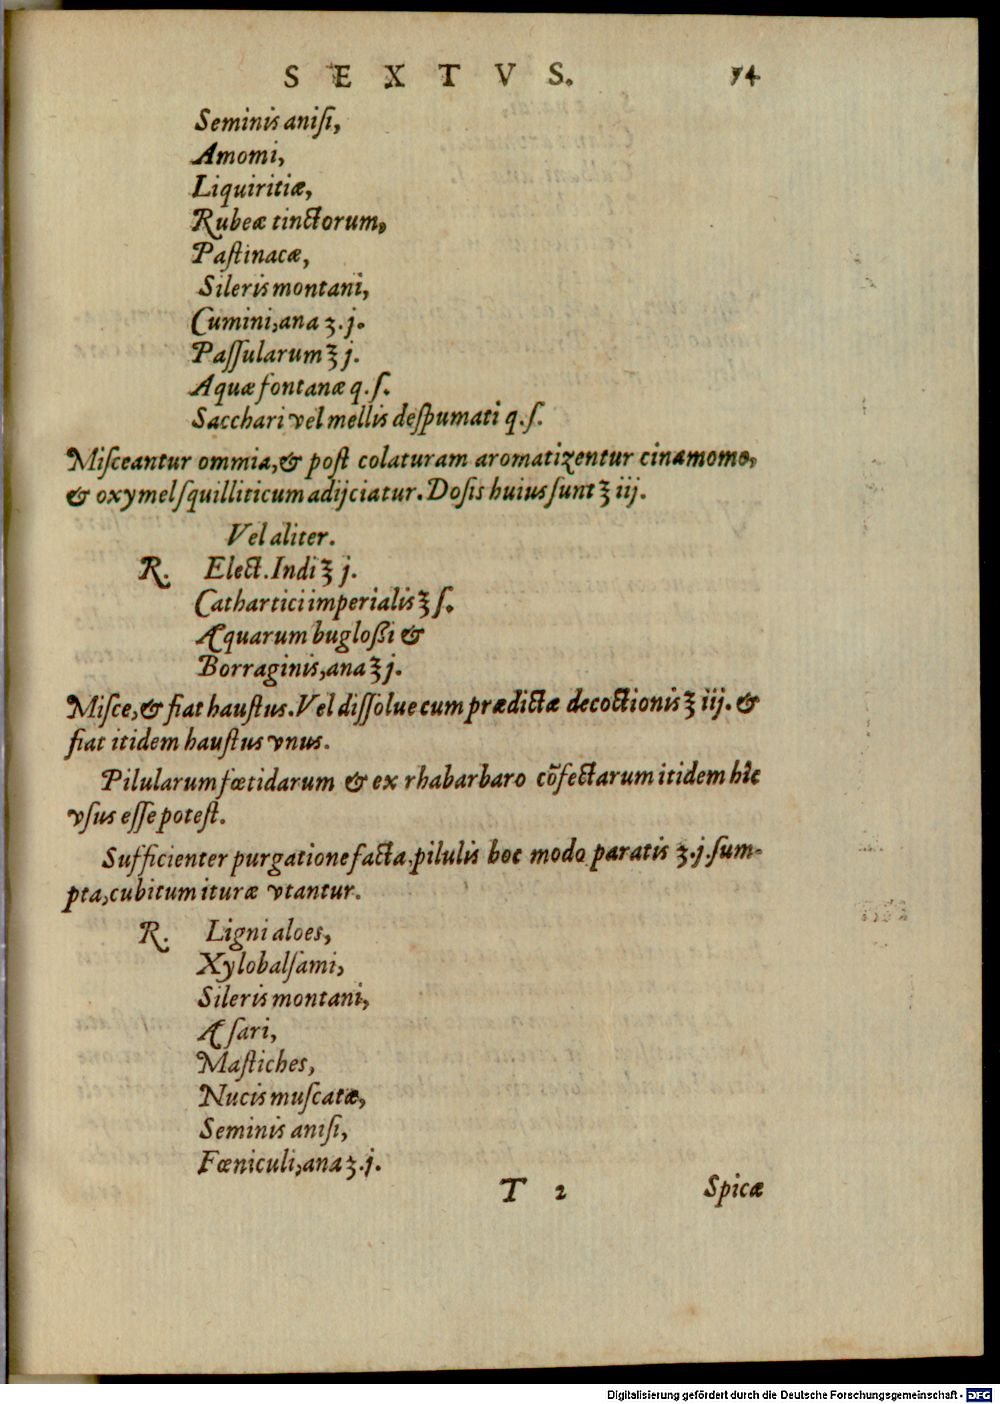 SEXTVS. 74
Seminis aniſi,
Amomi,
Liquiritiæ,
Rubeæ tinctorum,
Paſtinacæ,
Sileris montani,
Cumini, ana ʒ. j.
Paſſularum ℥ j.
Aquæ fontanæ q. ſ.
Sacchari vel mellis deſpumati q. ſ.
Miſceantur ommia, & poſt colaturam aromatizentur cinamomo,
& oxymel ſquilliticum adijciatur. Doſis huius ſunt ℥ iij.
Vel aliter.
R. Elect. Indi ℥ j.
Cathartici imperialis ℥ ſ.
Aquarum bugloßi &
Borraginis, ana ℥ j.
Miſce, & fiat hauſtus. Vel diſſolue cum prædictæ decoctionis ℥ iij. &
fiat itidem hauſtus vnus.
Pilularum fœtidarum & ex rhabarbaro cõfectarum itidem hîc
vſus eſſe poteſt.
Sufficienter purgatione facta, pilulis hoc modo paratis ʒ. j. ſum-
pta, cubitum ituræ vtantur.
R. Ligni aloes,
Xylobalſami,
Sileris montani,
Aſari,
Maſtiches,
Nucis muſcatæ,
Seminis aniſi,
Fœniculi, ana ʒ. j.
T 2 Spicæ
Digitalisierung gefördert durch die Deutsche Forschungsgemeinschaft - DFG